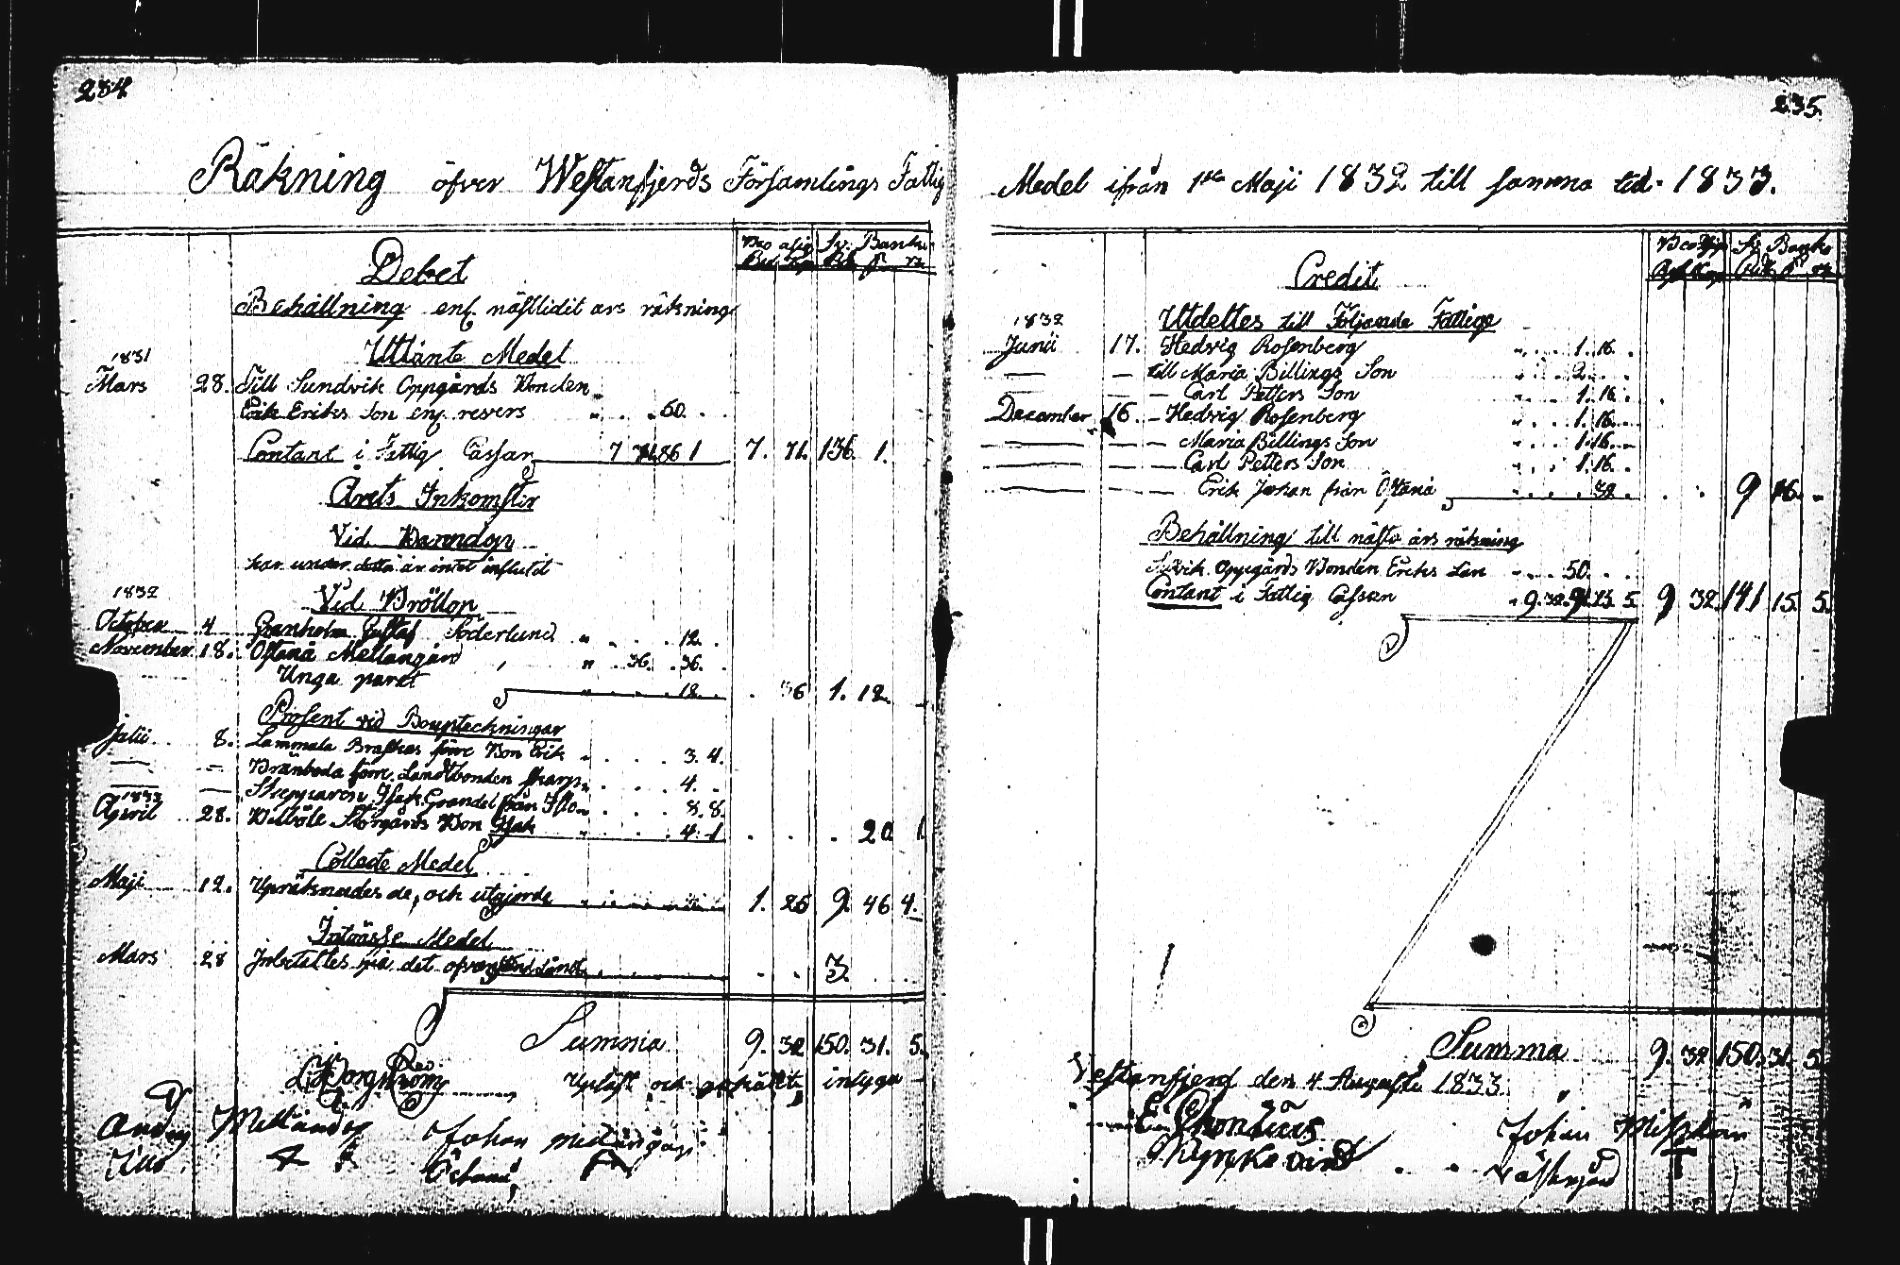 234
Räkning öfver Westanfjerds Församlings Fattig
Debet
Bco Rub. Kop. Sv. Banko Rd. ß. rs.
Behållning enl. nästlidit års räkning
Utlånte Medel
1831
Mars 28. Till Sundvik Oppgårds Bonden
Erik Eriks Son enl. revers 50.
Contant i Fattig Cassan 7 71. 86 1 7. 71. 136. 1.
Årets Inkomster
Vid Barndop
har under detta år intet influtit
1832
Vid Bröllop
October 4 Granholm Gustaf Söderlund 12.
November 18. Östanå Mellangård 36. 36.
Unga paret 12. 36 1. 12.
Prosent vid Bouptechningar
Julii 8. Lammala Brasthas förre Bon Erik 3. 4.
Brånboda förre Landtbonden 4.
Isak Grandel från 8. 8.
1833
April 28. Billböle Storgårds Bon Isak 4. 1 20. 1
Collecte Medel
Maji 12. Upräknades de, och utgjorde 1. 26 9. 46 4.
Inträsse Medel
Mars 28 Inbetaltes på det ofvanstående 3.
Summa 9. 32 150. 31. 5.
L Borgström Upläst och gokändt, intyga
Anders Mellander Johan
235.
Medel ifrån 1sta Maji 1832 till samma tid 1833.
Credit
Sv. Banko
1832
Utdeltes till Följande Fattige
Junii 17. Hedvig Rosenberg 1. 16.
till Maria Billings Son 2.
Carl Petters Son 1. 16.
December 16. Hedvig Rosenberg 1. 16.
Maria Billings Son 1. 16.
Carl Petters Son 1. 16.
Erik Johan från Östanå 32. 9 16.
Behållning till nästa års räkning
Oppgårds Bonden Eriks Son 50.
Contant i Fattig Cassan 9. 32. 91. 15. 5. 9 32. 141 15. 5.
Summa 9. 32. 150. 31. 5
Vestanfjerd den 4 Augusti 1833.
Johan
Kyrkovärd